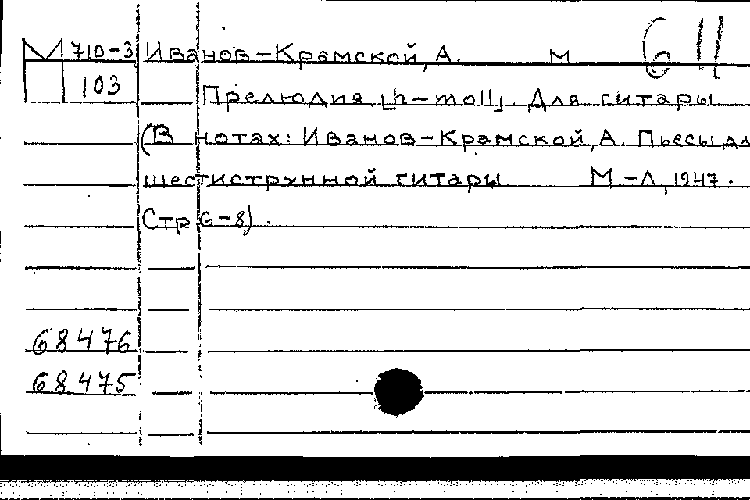 М 710-3 Иванов-Крамской, А. М 611
103 Прелюдия [h-moll]. Для гитары
(В нотах: Иванов-Крамской, А. Пьесы дл
шестиструнной гитары М-Л, 1947.
Стр 6-8).
68476
68475